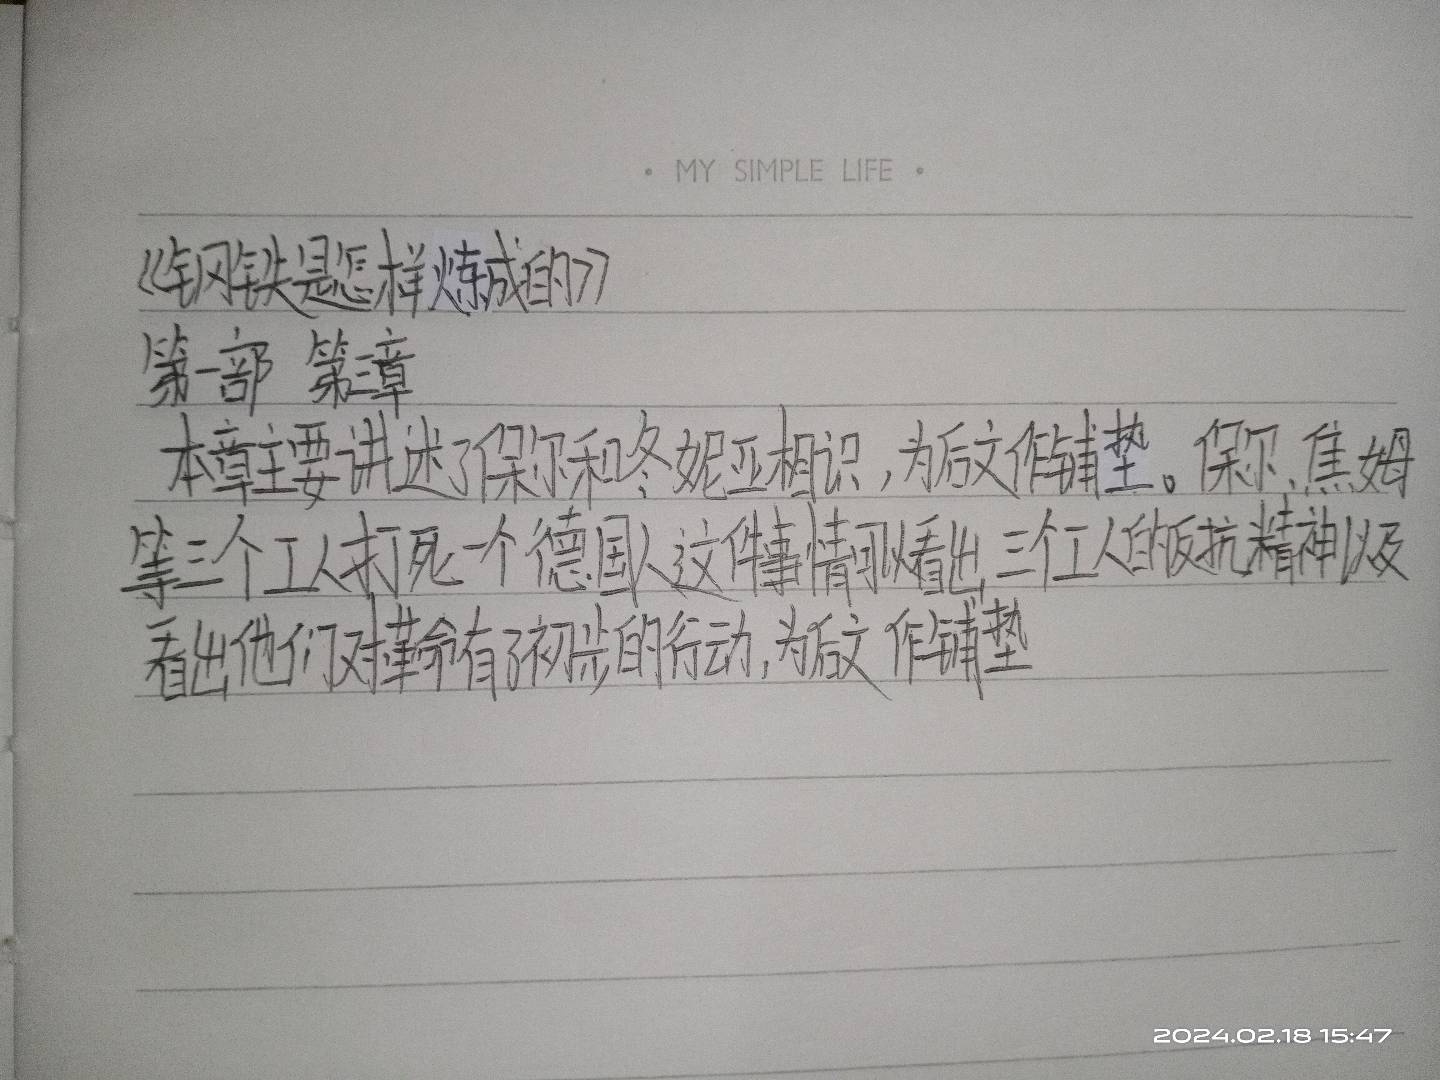 · MY SIMPLE LIFE ·
《钢铁是怎样炼成的》
第一部 第三章
本章主要讲述了保尔和冬妮亚相识，为后文作铺垫。保尔、焦姆
等三个工人打死一个德国人这件事情可以看出三个工人的反抗精神以及
看出他们对革命有了初步的行动，为后文作铺垫
2024.02.18 15:47